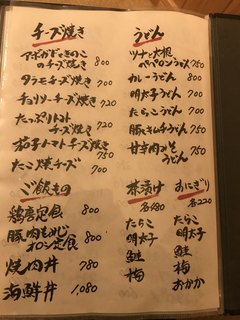 チーズ焼き
アボガドときのこ
のチーズ焼き 800
タラモチーズ焼き 700
チョリソーチーズ焼き 720
たっぷりトマト
チーズ焼き 720
茄子トマトチーズ焼き 750
たこ焼チーズ 700
うどん
ツナと大根
ペペロンうどん 750
カレーうどん 800
明太子うどん 700
たらこうどん 700
豚キムチうどん 750
甘辛肉みそ
うどん 750
ご飯もの
鶏唐定食 800
豚肉もみじ
オロシ定食 800
焼肉丼 780
海鮮丼 1,080
茶漬け
各480
たらこ
明太子
鮭
梅
おにぎり
各220
たらこ
明太子
鮭
梅
おかか